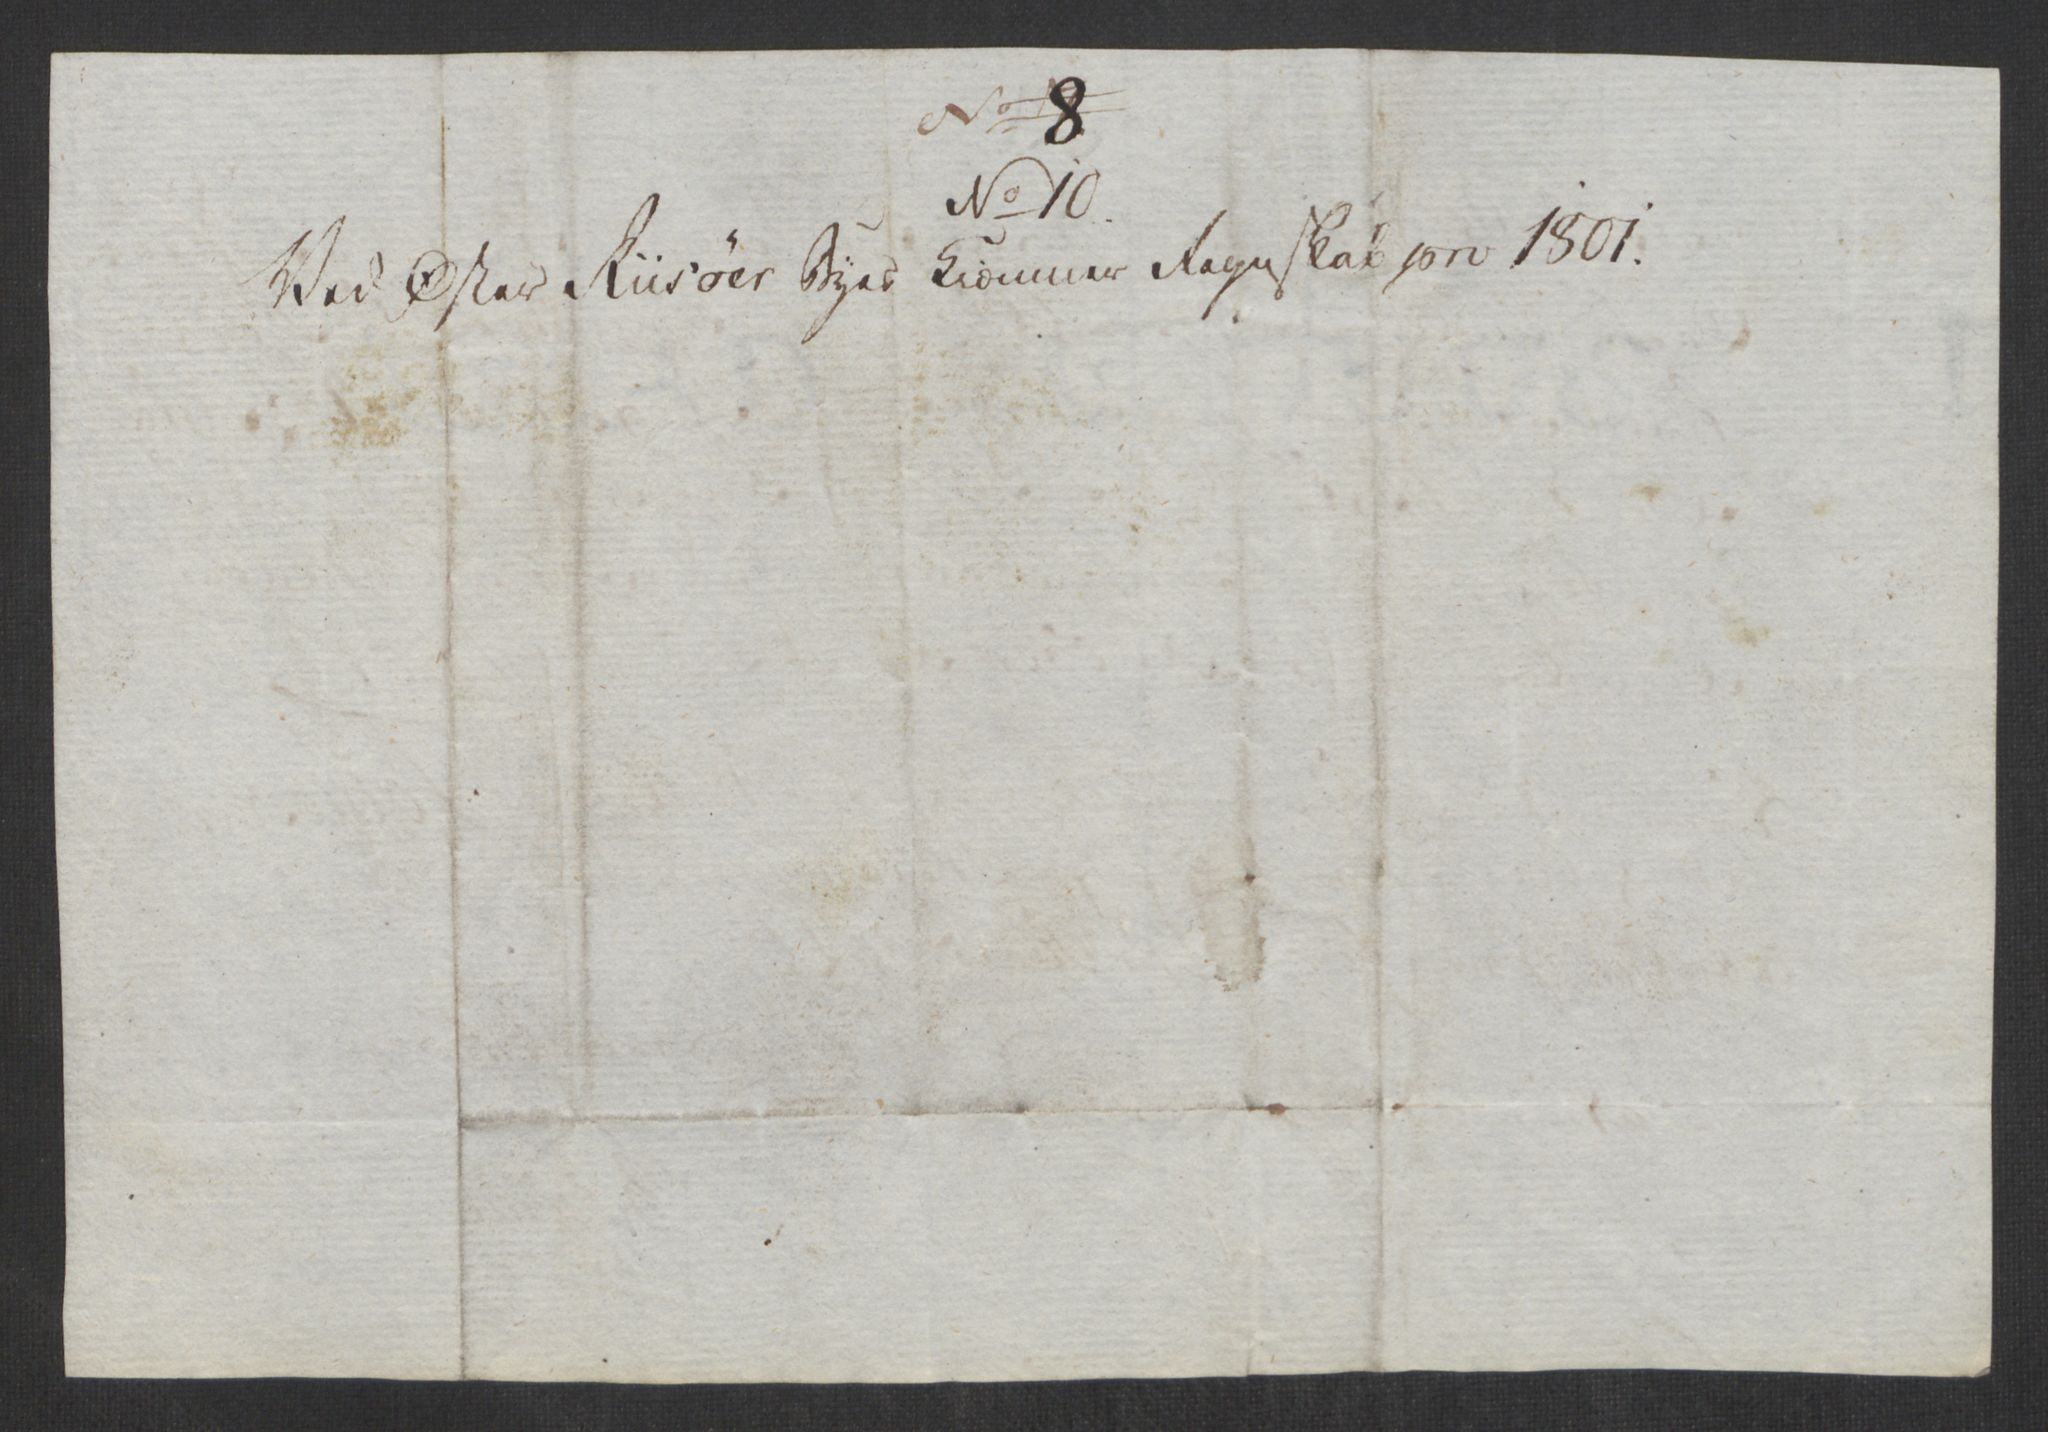 No 8
No 10.
Ved Øster Riisøer Byes Kiæmner Regnskab pro 1801.